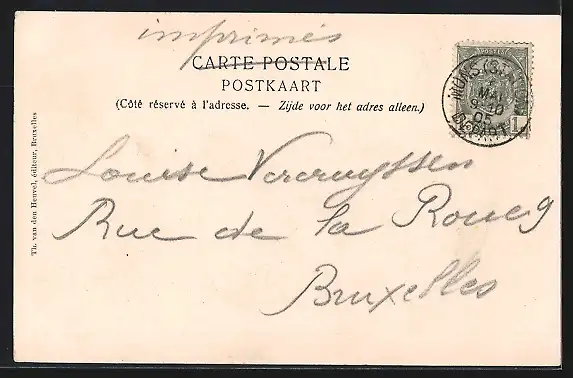 imprimés
CARTE POSTALE
POSTKAART
(Côté réservé à l'adresse. — Zijde voor het adres alleen.)
POSTES
MONS (
MAI
9-10
05
DEPART
1
Louise Vercruyssen
Rue de la Roue 9
Bruxelles
Th. van den Heuvel, éditeur, Bruxelles